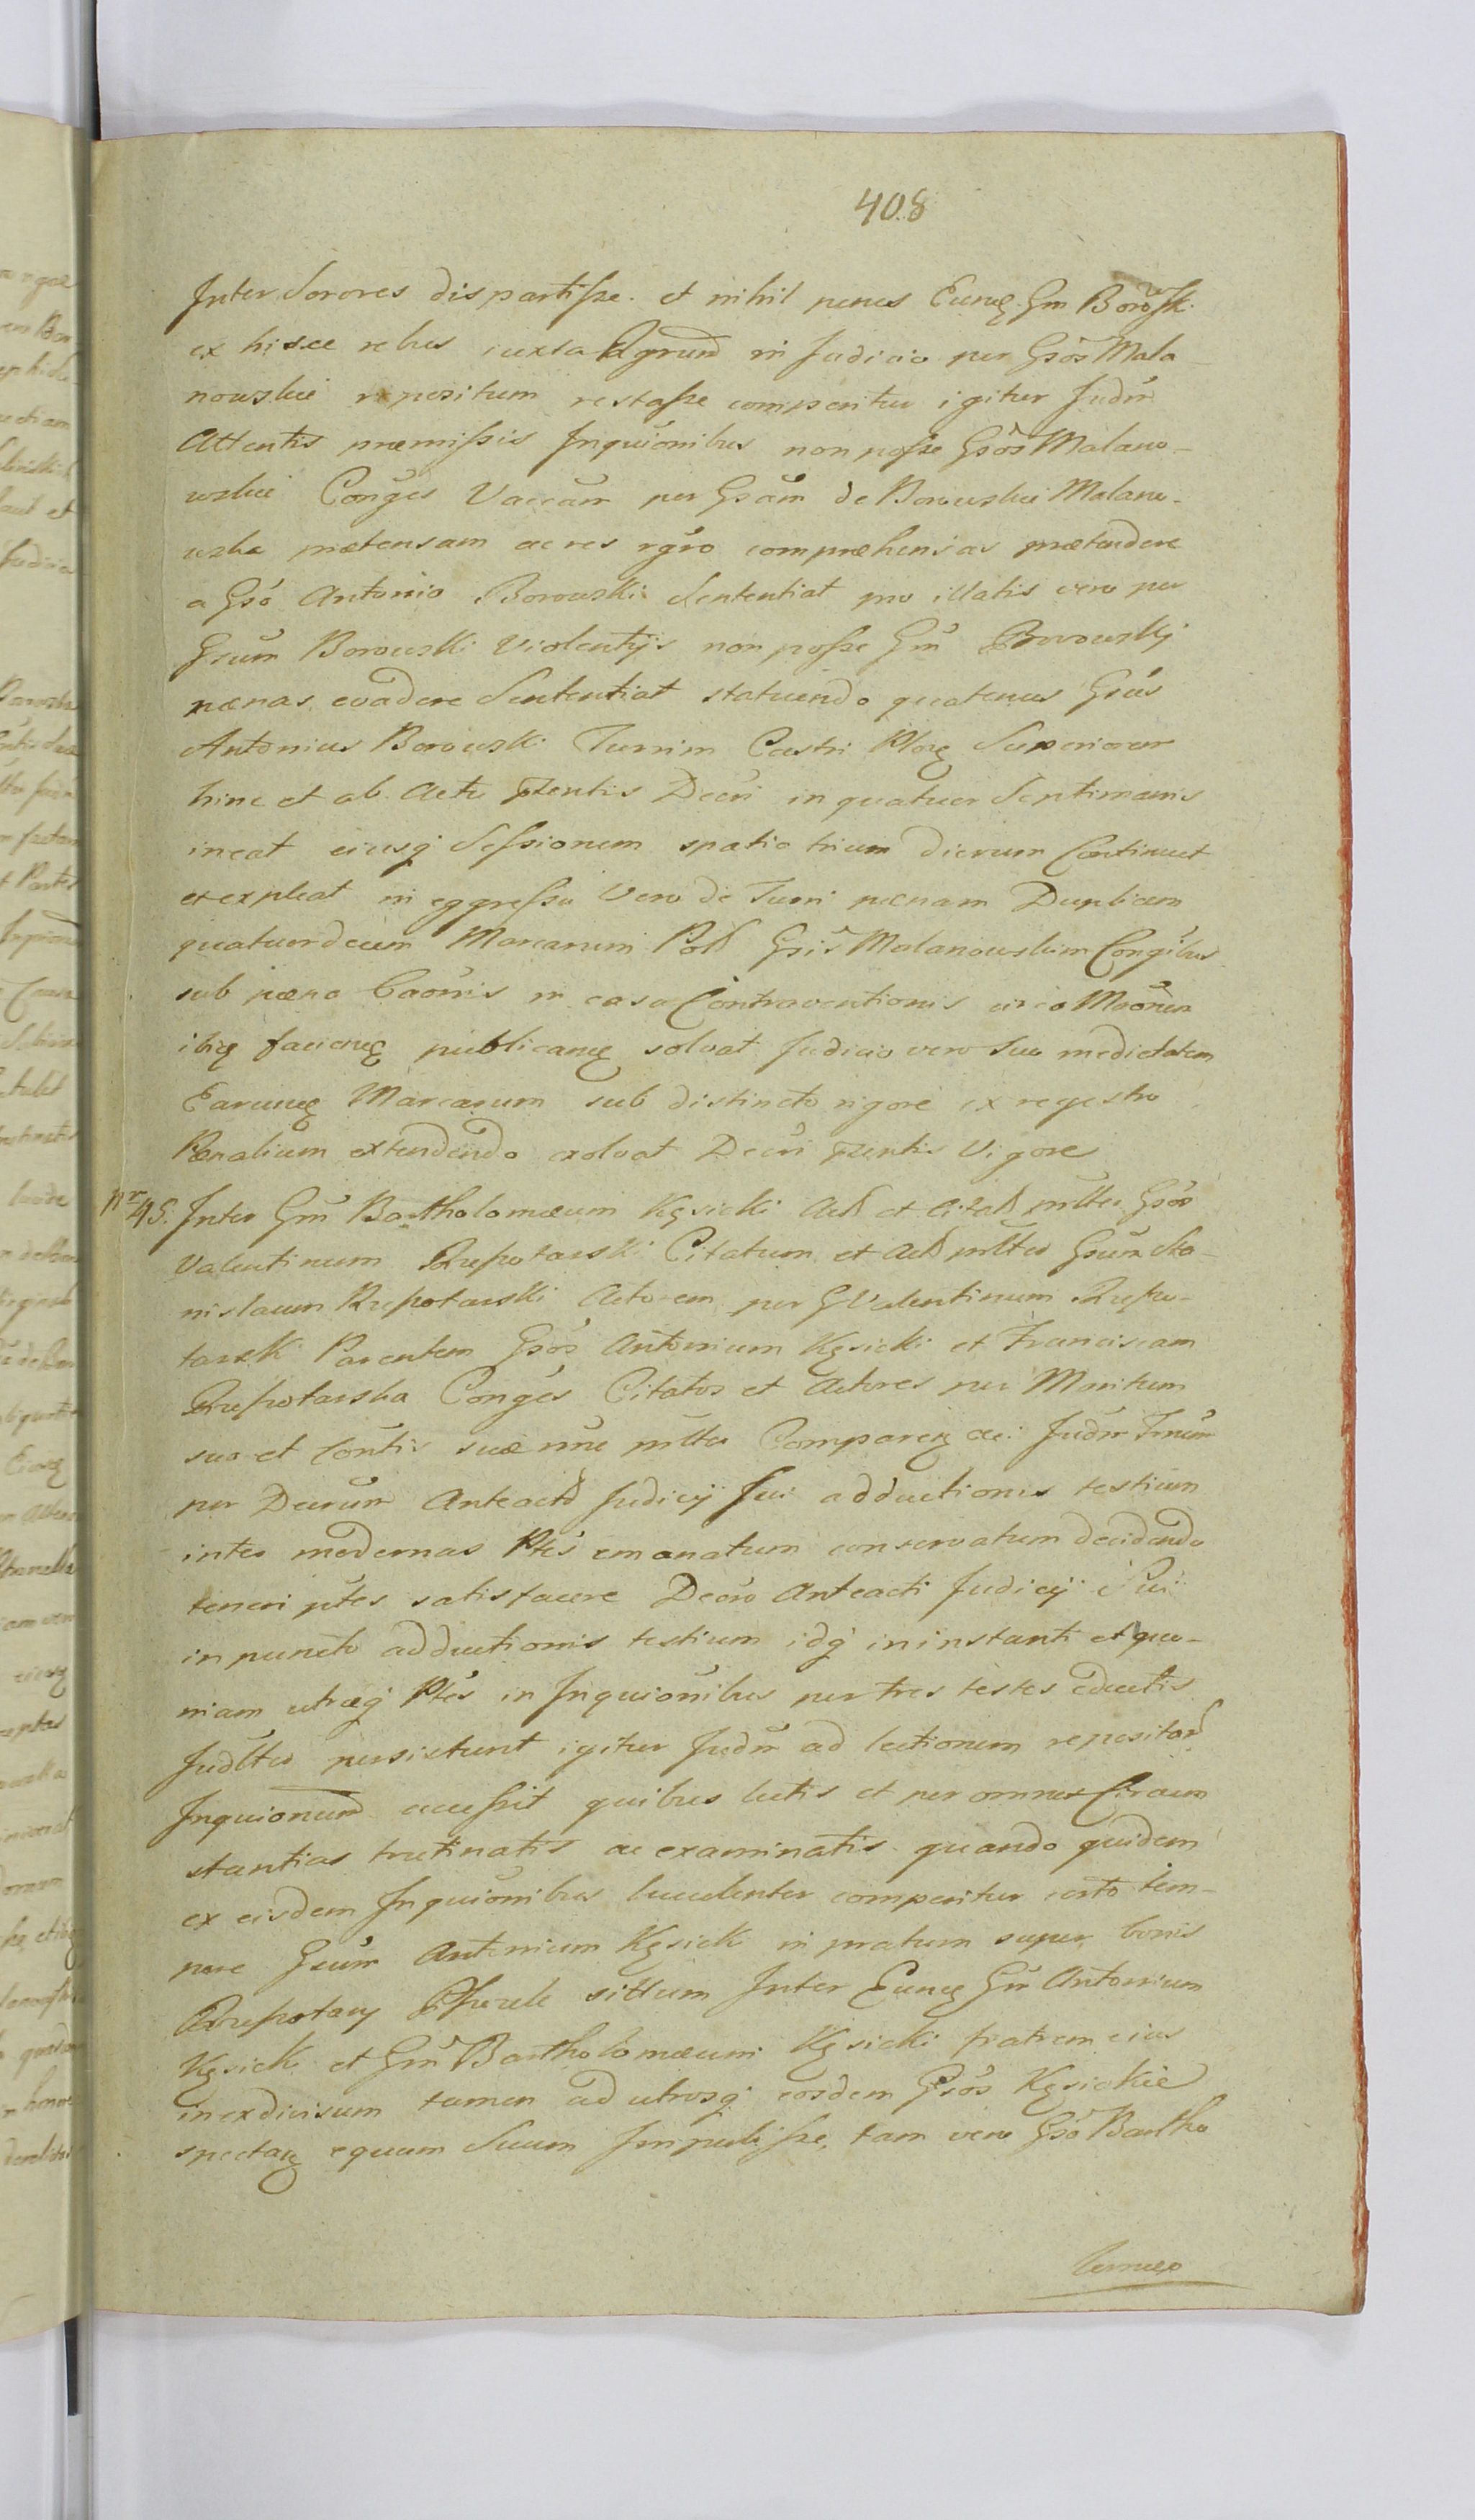 408
Inter Sorores dispartisse. et nihil penes Eunq Gm Borowsk.
ex hisce rebus iuxta Rgrum in Judicio per Gsos Mala-
nowskie repositum restasse comperitur igitur Judm
Attentis præmissis Inquionibus non posse Gsos Malano-
wskie Conges Vaccam per Gsam de Borowskie Malano-
wska prætensam ac res rgro compræhensas prætendere
a Gso Antonio Borowski Sententiat pro illatis vero per
Gsum Borowski Violentÿs non posse Gm Borowskj
pœnas evadere Sententiat statuendo quatenus Gsus
Antonius Borowski Turrim Castri Plocq Superiorem
hinc et ab Actu pzentis Decri in quatuor Septimanis
ineat eiusq Sessionem spatio trium dierum Continuet
et expleat in eggressu Vero de Turri pœnam Duplicem
quatuordecim Marcarum Pol Gsis Malanowskim Congibus
sub pœna Baonis in casu Contraventionis circa Maonem
ibiq faciendq publicanq solvat Judicio vero Suo medietatem
Earunq Marcarum sub distincto rigore ex regestro
Pœnalium extendendo exolvat Decri pzentis Vigore
Nr 45. Inter Gm Bartholomæum Kęsicki Act et Citat pulter Gsos
Valentinum Rzeszotarski Citatum et Act pulter Gsum Sta-
nislaum Rzeszotarski Actorem per G Valentinum Rzeszo-
tarski Parentem Gsos Antonium Kęsicki et Franciscam
Rzeszotarska Conges Citatos et Actores per Maritum
suo et Contis suæ nne pulter Comparen ac: Judm Fnum
per Decrum Anteacti Judicÿ Sui adductionis testium
inter modernas Ptes emanatum conservatum decidendo
teneri ptes satisfacere Decro Anteacti Judicÿ Sui
in puncto adductionis testium idq in instanti et quo-
niam utræq Ptes in Inquionibus per tres testes eductis
Judlter persistunt igitur Judm ad lectionem repositar
Inquionum accessit quibus lectis et per omnes Circum
stantias trutinatis ac examinatis quando quidem
ex eisdem Inquionibus luculenter comperitur certo tem-
pore Gsum Antonium Kęsick in pratum super bonis
Rzeszotary sittum Inter Eunq Gm Antonium
Kęsick et Gm Bartholomæum Kęsicki fratrem eius
inexdivisum tamen ad utrosq eosdem Gsos Kęsickie
spectanq equum Suum Impulisse, tam vero Gso Bartho